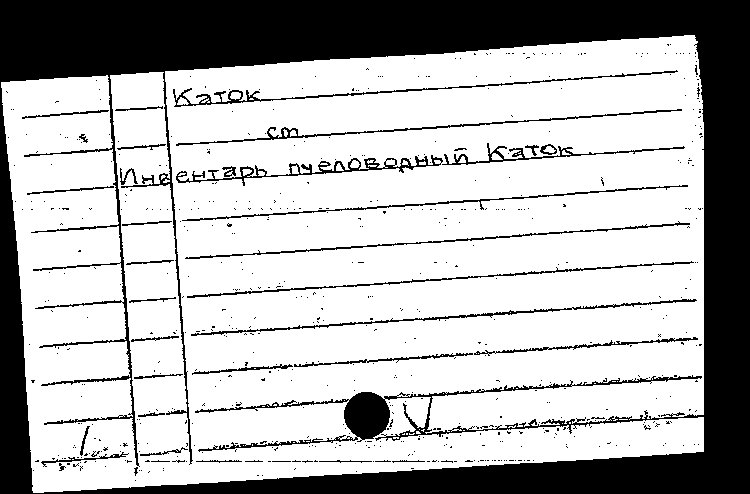 Каток
ст
Инвентарь пчеловодный Каток